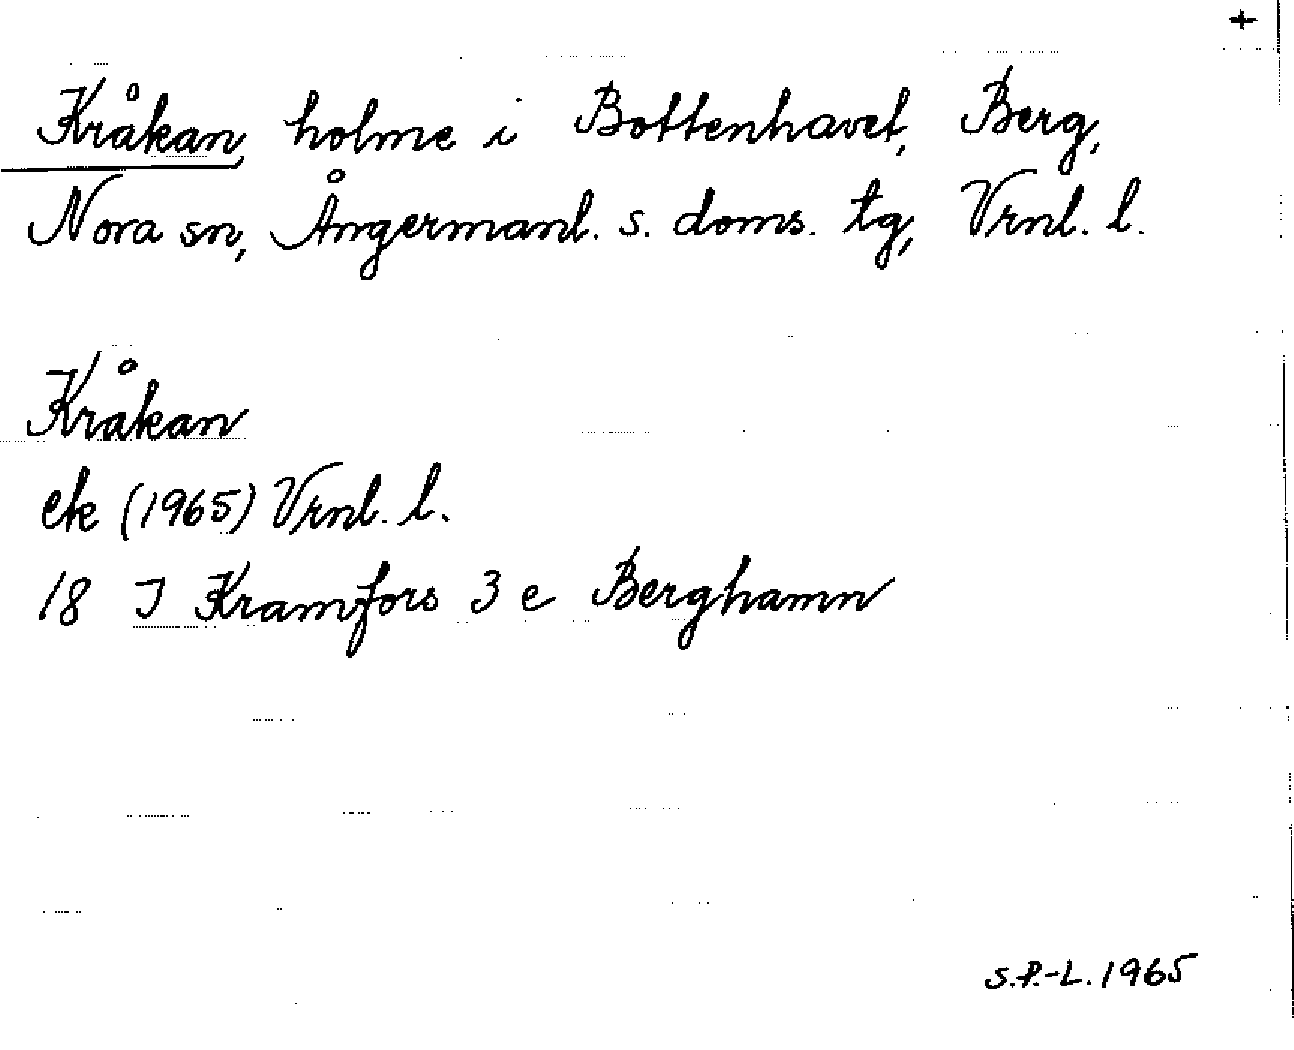 +
Kråkan, holme i Bottenhavet, Berg,
Nora sn, Ångermanl. s. doms. tg, Vrnl. l.
Kråkan
ek (1965) Vrnl. l.
18 J Kramfors 3 e Berghamn
S.P.-L. 1965